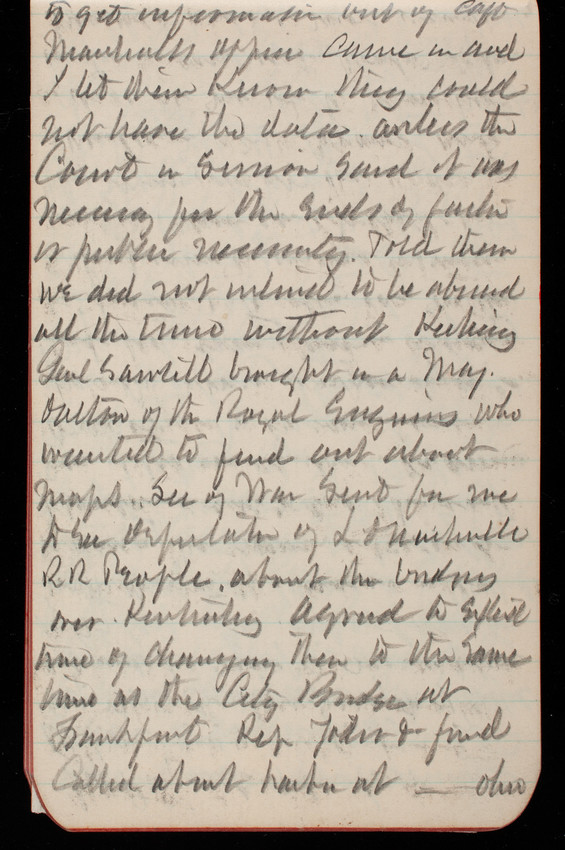 to get information out of Capt
Marshalls office came in and
I let them know they could
not have the data unless the
Court in Session said it was
necessary for the ends of justice
or public necessity. Told them
we did not intend to be abused
all the time without kicking
Genl Sawtell brought in a Maj.
Dalton of the Royal Engineers who
wanted to find out about
maps. Sec of War Sent for me
to See deputation of L & Nashville
RR People, about the bridges
over Kentucky agreed to Extend
time of changing them to the Same
time as the City Bridge at
Frankfort Rep & friend
Called about harbor at — Ohio